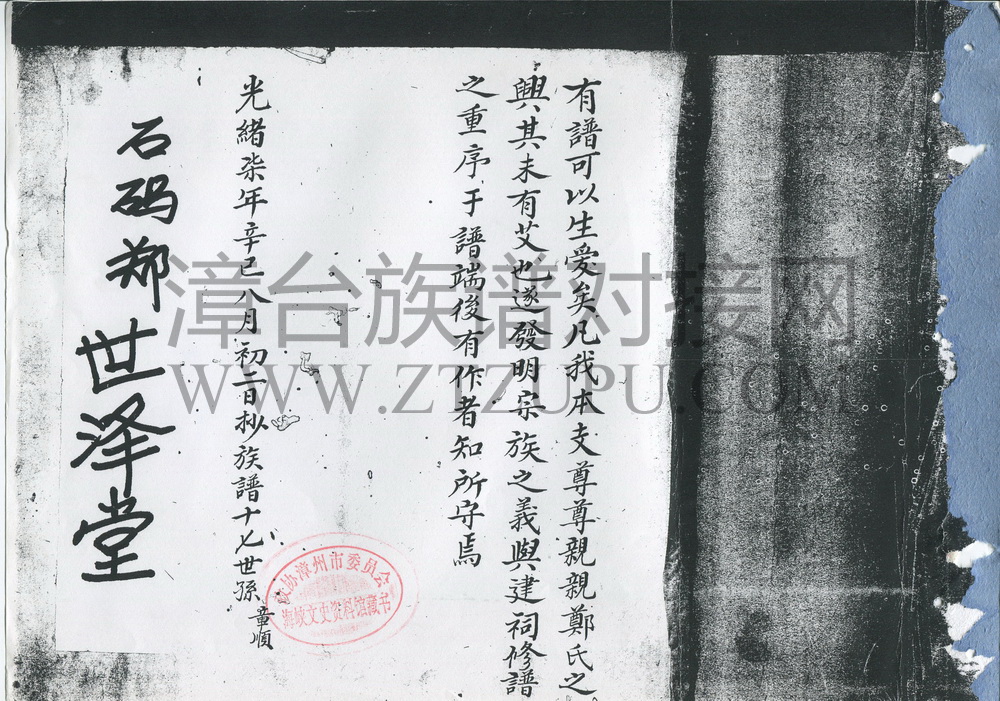 有譜可以生愛矣凡我本支尊尊親親鄭氏之
興其未有艾也遂發明宗族之義與建祠修譜
之重序于譜端後有作者知所守焉
光緒柒年辛巳八月初二日抄族譜十七世孫章順
石码郑世泽堂
政协漳州市委员会
海峡文史资料馆藏书
漳台族谱对接网
WWW.ZTZUPU.COM